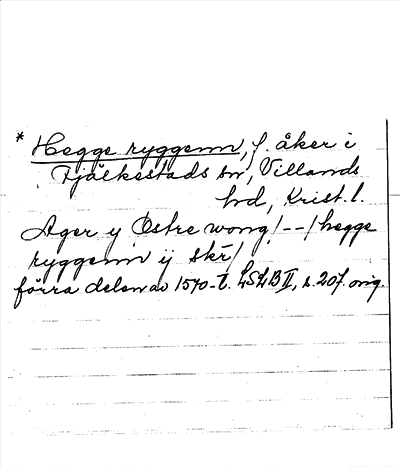 * Hegge ryggenn, f. åker i
Fjälkestads sn, Villands
hd, Krist. l.
Ager y Østre wong/--/hegge
ryggenn ij skr̄/
förra delen av 1570-t. LSLB II, s. 207. orig.